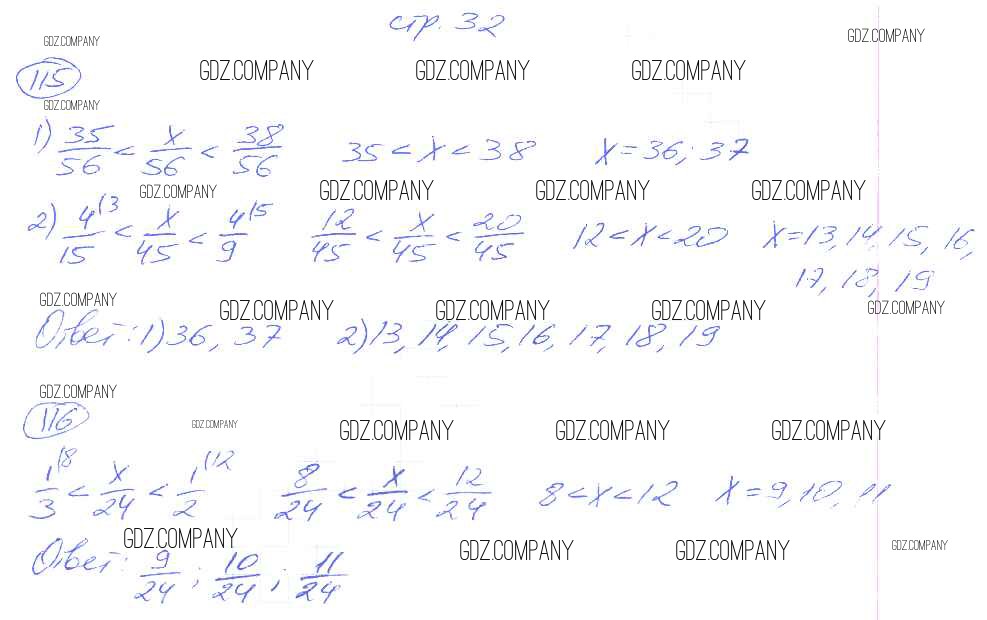 стр. 32
GDZ.COMPANY GDZ.COMPANY
115 GDZ.COMPANY GDZ.COMPANY GDZ.COMPANY
GDZ.COMPANY
1) 35/56 < x/56 < 38/56 35 < x < 38 x = 36; 37
GDZ.COMPANY GDZ.COMPANY GDZ.COMPANY GDZ.COMPANY
2) 4/15 (3 < x/45 < 4/9 (5 12/45 < x/45 < 20/45 12 < x < 20 x = 13, 14, 15, 16,
17, 18, 19
GDZ.COMPANY GDZ.COMPANY GDZ.COMPANY GDZ.COMPANY GDZ.COMPANY
Ответ: 1) 36, 37 2) 13, 14, 15, 16, 17, 18, 19
GDZ.COMPANY
116 GDZ.COMPANY GDZ.COMPANY GDZ.COMPANY GDZ.COMPANY
1/3 (8 < x/24 < 1/2 (12 8/24 < x/24 < 12/24 8 < x < 12 x = 9, 10, 11
GDZ.COMPANY GDZ.COMPANY GDZ.COMPANY GDZ.COMPANY
Ответ: 9/24; 10/24; 11/24